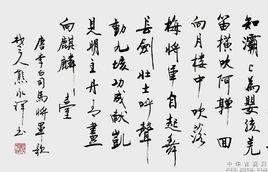 知灞上為嬰孩羌
笛橫吹阿嚲回
向月樓中吹落
梅將軍自起舞
長劍壯士呼聲
動九垓功成獻凱
見明主丹青畫
向麒麟臺
唐李白司馬將軍歌